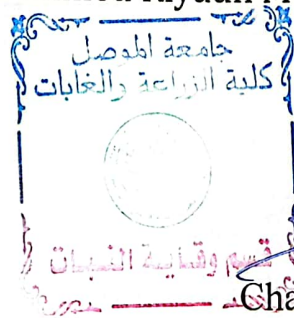 جامعة الموصل
كلية الزراعة والغابات
قسم وقاية النبات
Cha